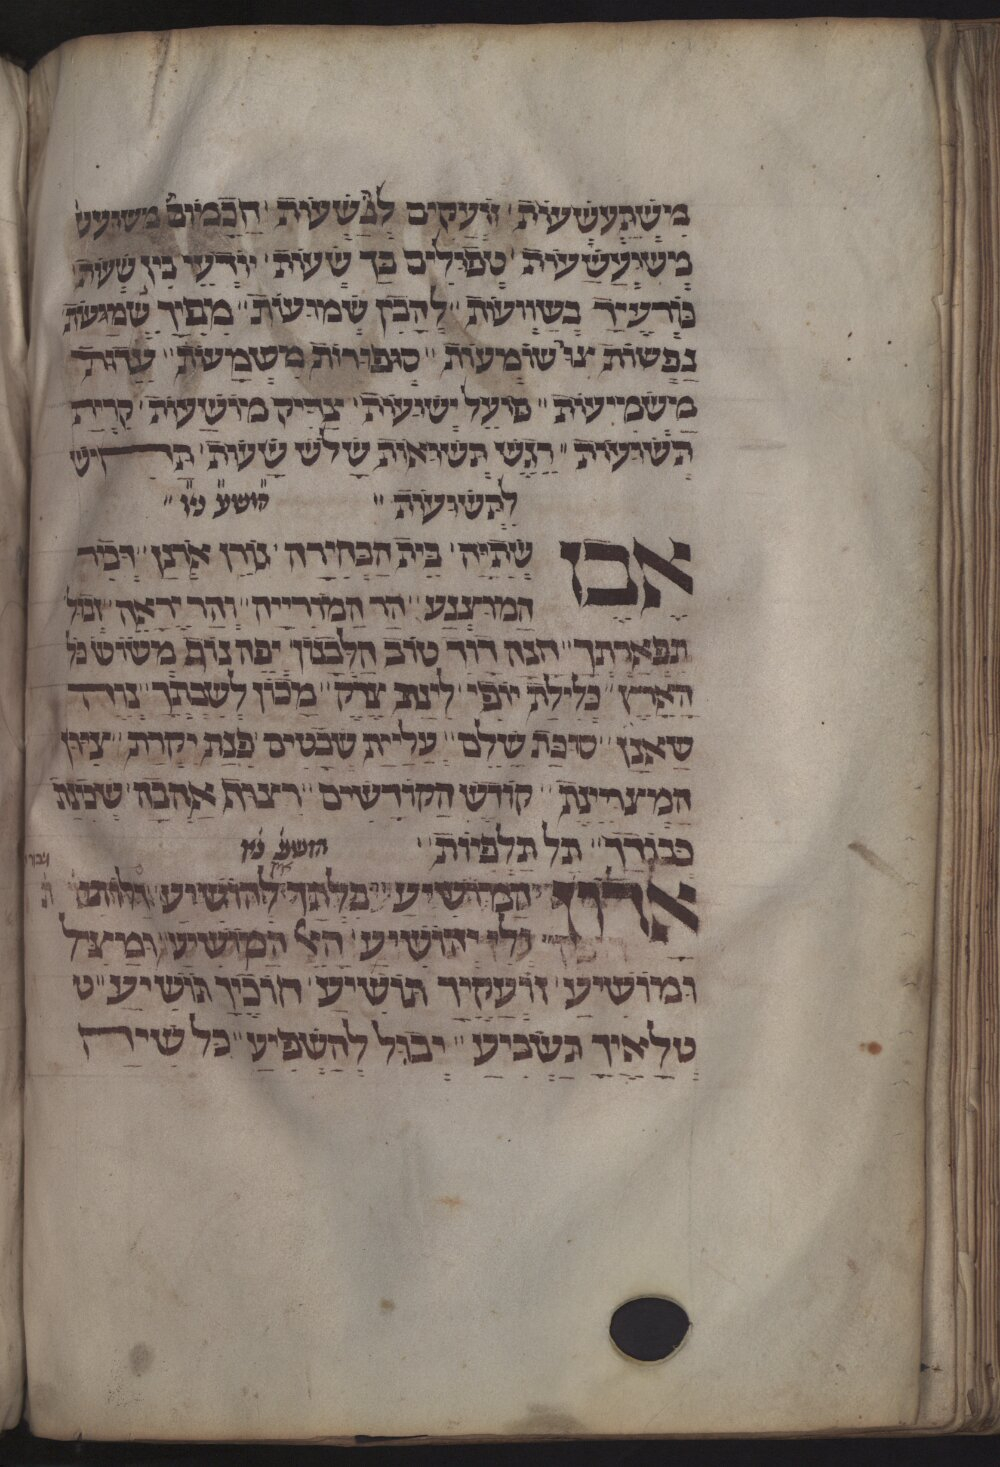 מִשְׁתַּעְשְׁעוֹת זוֹעֲקִים לְךָ בְּשָׁעוֹת חֲכָמוֹם משועש
מְשׁוּעְשָׁעוֹת טְפוּלִים בְּךָ שָׁעוֹת יוֹדְעֵי בִין שָׁעוֹת
כּוֹרְעֶיךָ בְּשַׁוְועוֹת לְהָבִין שְׁמוּעוֹת מִפִּיךָ שְׁמַגְעוֹת
נְפָשׁוֹת שׁוֹמְעוֹת סְפוּרוֹת מַשְׁמָעוֹת עֵדוּת
מַשְׁמִיעוֹת פּוֹעֵל יְשׁוּעוֹת צַדִּיק מוֹשָׁעוֹת קִרְיַת
תְּשׁוּעוֹת רֶגֶשׁ תְּשׁוּאוֹת שָׁלֹשׁ שָׁעוֹת תָּחִישׁ
לִתְשׁוּעוֹת הושע נו
אֶבֶן שְׁתִיָּה בֵּית הַבְּחִירָה גּוֹרֶן אָרְנָן דְּבִיר
הַמּוּצְנָע הַר הַמּוֹרִיָּיה וְהַר יֵרָאֶה זְבוּל
תִּפְאַרְתֶּךָ חָנָה דָוִד טוֹב הַלְּבָנוֹן יְפֵה נוֹף מְשׂוֹשׂ כָּל
הָאָרֶץ כְּלִילַת יוֹפִי לִינַת צֶדֶק מָכוֹן לְשִׁבְתֶּךָ נָוֶה
שַׁאֲנָן סוּכַּת שָׁלֵם עֲלִיַּית שְׁבָטִים פִּנַּת יִקְרַת צִיּוֹן
הַמְצוּיֶּינֶת קוֹדֶשׁ הַקֳּדָשִׁים רָצוּף אַהֲבָה שְׁכִינַת
כְּבוֹדֶךָ תֵּל תַּלְפִּיּוֹת הושע נו
אָדוֹן הַמּוֹשִׁיעַ בִּלְתְּךָ לְהוֹשִׁיעַ
וְלִי יְהוֹשִׁיעַ הָאֵל הַמּוֹשִׁיעַ וּמַצִּיל
וּמוֹשִׁיעַ זוֹעֲקֶיךָ תּוֹשִׁיעַ חוֹכֶיךָ תּוֹשִׁיעַ ט
טְלָאֶיךָ תַּשְׂבִּיעַ יְבוּל לְהַשְׁפִּיעַ כָּל שִׂיחַ